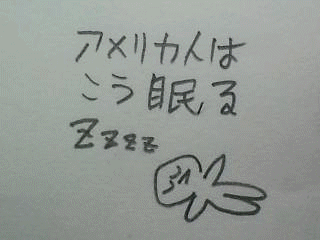 アメリカ人は
こう眠る
Zzzz
31